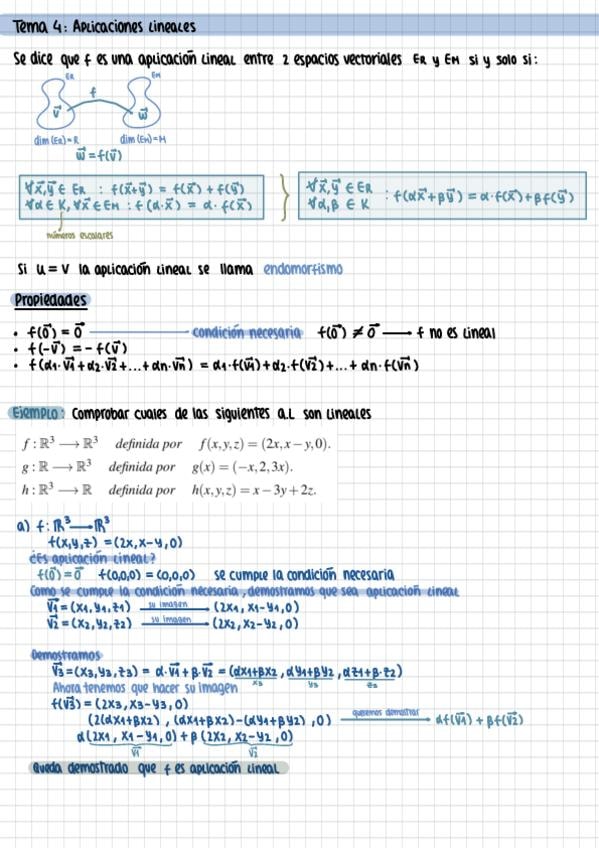 Tema 4: Aplicaciones lineales
Se dice que f es una aplicación lineal entre 2 espacios vectoriales ER y EM si y solo si:
ER EM
f
v⃗ w⃗
dim(ER)=R dim(EM)=M
w⃗ = f(v⃗)
∀x⃗,y⃗ ∈ ER : f(x⃗+y⃗) = f(x⃗) + f(y⃗)
∀α ∈ K, ∀x⃗ ∈ EM : f(α·x⃗) = α·f(x⃗)
∀x⃗,y⃗ ∈ ER
∀α,β ∈ K : f(αx⃗+βy⃗) = α·f(x⃗)+βf(y⃗)
números escalares
Si U = V la aplicación lineal se llama endomorfismo
Propiedades
• f(0⃗) = 0⃗ condición necesaria f(0⃗) ≠ 0⃗ — f no es lineal
• f(-v⃗) = - f(v⃗)
• f(α1·v⃗1 + α2·v⃗2 + ... + αn·v⃗n) = α1·f(v⃗1)+α2·f(v⃗2)+...+ αn·f(v⃗n)
Ejemplo: Comprobar cuales de las siguientes a.l son lineales
f : ℝ³ ⟶ ℝ³ definida por f(x,y,z) = (2x, x−y, 0).
g : ℝ ⟶ ℝ³ definida por g(x) = (−x, 2, 3x).
h : ℝ³ ⟶ ℝ definida por h(x,y,z) = x − 3y + 2z.
a) f: ℝ³ ⟶ ℝ³
f(x,y,z) = (2x, x-y, 0)
¿Es aplicación lineal?
f(0⃗) = 0⃗ f(0,0,0) = (0,0,0) se cumple la condición necesaria
Como se cumple la condición necesaria, demostramos que sea aplicación lineal
v⃗1 = (x1, y1, z1) su imagen ⟶ (2x1, x1-y1, 0)
v⃗2 = (x2, y2, z2) su imagen ⟶ (2x2, x2-y2, 0)
Demostramos
v⃗3 = (x3, y3, z3) = α·v⃗1 + β·v⃗2 = (αx1+βx2, αy1+βy2, αz1+β·z2)
x3 y3 z3
Ahora tenemos que hacer su imagen
f(v⃗3) = (2x3, x3-y3, 0)
(2(αx1+βx2), (αx1+βx2)-(αy1+βy2), 0) queremos demostrar ⟶ αf(v⃗1) + βf(v⃗2)
α(2x1, x1-y1, 0) + β(2x2, x2-y2, 0)
v⃗1 v⃗2
Queda demostrado que f es aplicación lineal